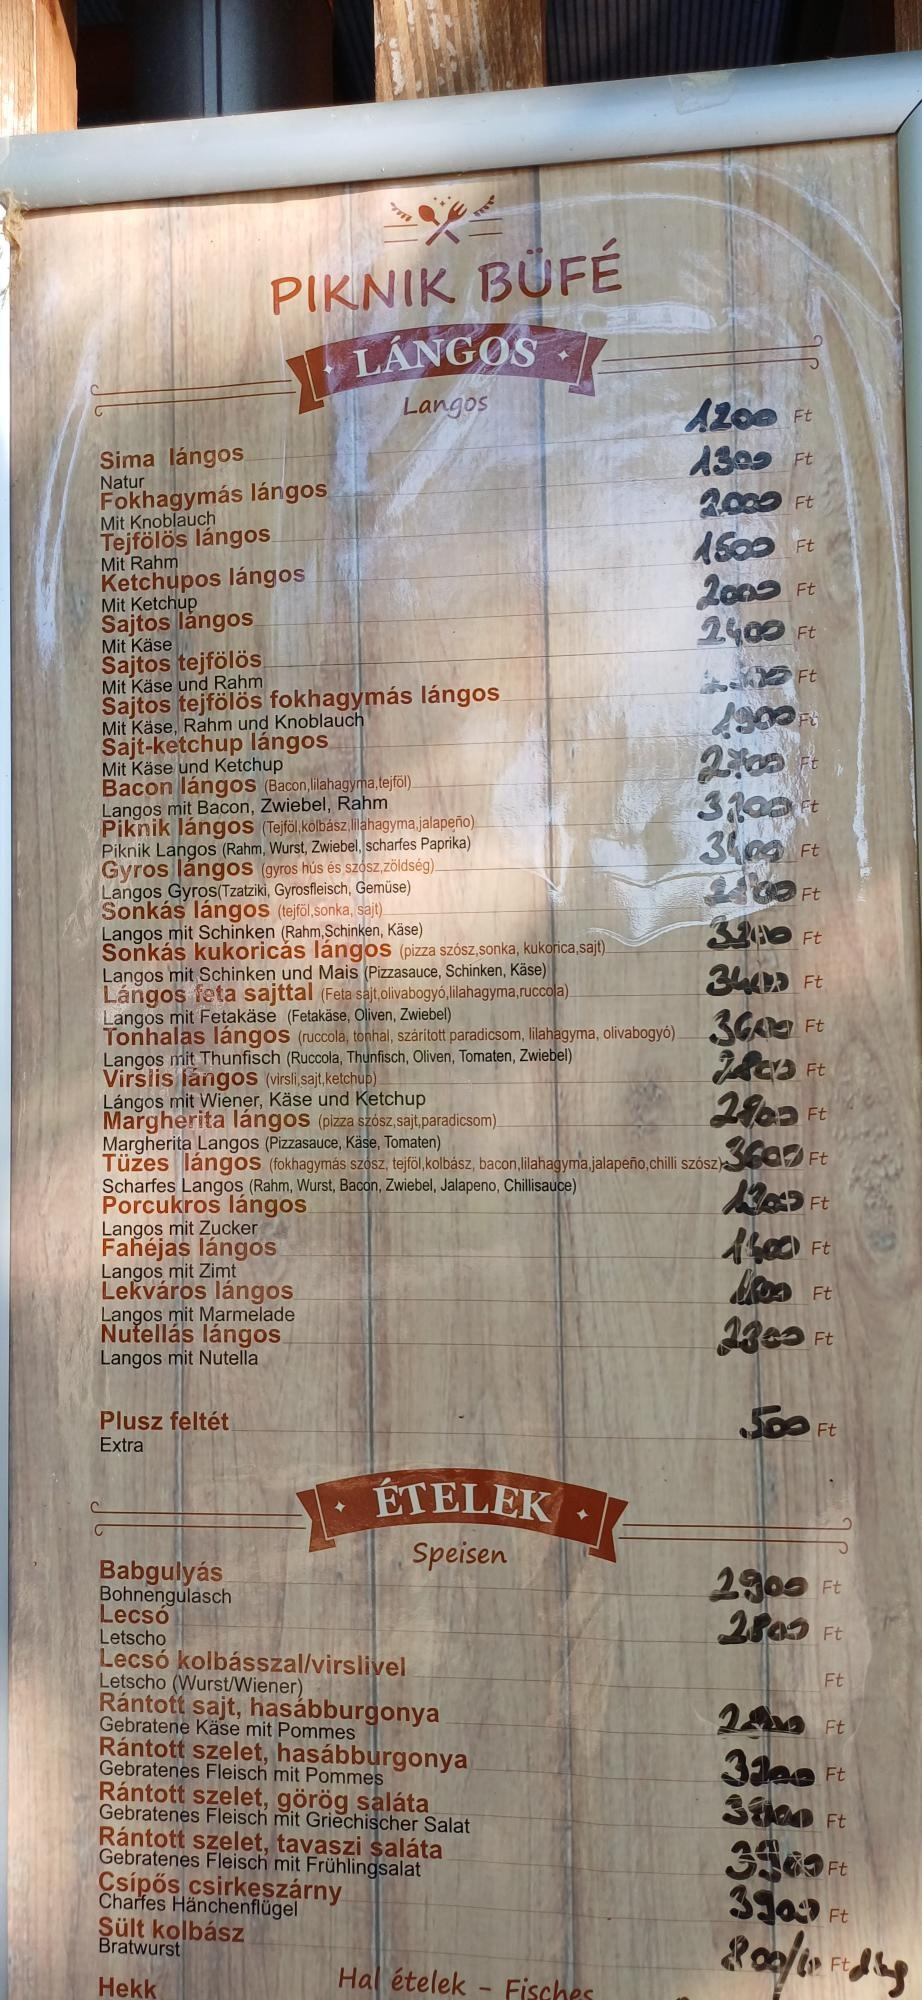 PIKNIK BÜFÉ
LÁNGOS
Langos
Sima lángos 1200 Ft
Natur
Fokhagymás lángos 1300 Ft
Mit Knoblauch
Tejfölös lángos 2000 Ft
Mit Rahm
Ketchupos lángos 1500 Ft
Mit Ketchup
Sajtos lángos 2000 Ft
Mit Käse
Sajtos tejfölös 2400 Ft
Mit Käse und Rahm
Sajtos tejfölös fokhagymás lángos Ft
Mit Käse, Rahm und Knoblauch
Sajt-ketchup lángos 1900 Ft
Mit Käse und Ketchup
Bacon lángos (Bacon,lilahagyma,tejföl) 2700 Ft
Langos mit Bacon, Zwiebel, Rahm
Piknik lángos (Tejföl,kolbász,lilahagyma,jalapeño) Ft
Piknik Langos (Rahm, Wurst, Zwiebel, scharfes Paprika)
Gyros lángos (gyros hús és szósz,zöldség) 3400 Ft
Langos Gyros(Tzatziki, Gyrosfleisch, Gemüse)
Sonkás lángos (tejföl,sonka, sajt) Ft
Langos mit Schinken (Rahm,Schinken, Käse)
Sonkás kukoricás lángos (pizza szósz,sonka, kukorica,sajt) Ft
Langos mit Schinken und Mais (Pizzasauce, Schinken, Käse)
Lángos feta sajttal (Feta sajt,olivabogyó,lilahagyma,ruccola) 3400 Ft
Langos mit Fetakäse (Fetakäse, Oliven, Zwiebel)
Tonhalas lángos (ruccola, tonhal, szárított paradicsom, lilahagyma, olivabogyó) 3600 Ft
Langos mit Thunfisch (Ruccola, Thunfisch, Oliven, Tomaten, Zwiebel)
Virslis lángos (virsli,sajt,ketchup) 2800 Ft
Lángos mit Wiener, Käse und Ketchup
Margherita lángos (pizza szósz,sajt,paradicsom) Ft
Margherita Langos (Pizzasauce, Käse, Tomaten)
Tüzes lángos (fokhagymás szósz, tejföl,kolbász, bacon,lilahagyma,jalapeño,chilli szósz) 3600 Ft
Scharfes Langos (Rahm, Wurst, Bacon, Zwiebel, Jalapeno, Chillisauce)
Porcukros lángos Ft
Langos mit Zucker
Fahéjas lángos Ft
Langos mit Zimt
Lekváros lángos Ft
Langos mit Marmelade
Nutellás lángos 2300 Ft
Langos mit Nutella
Plusz feltét 500 Ft
Extra
ÉTELEK
Speisen
Babgulyás 2900 Ft
Bohnengulasch
Lecsó 2800 Ft
Letscho
Lecsó kolbásszal/virslivel Ft
Letscho (Wurst/Wiener)
Rántott sajt, hasábburgonya Ft
Gebratene Käse mit Pommes
Rántott szelet, hasábburgonya Ft
Gebratenes Fleisch mit Pommes
Rántott szelet, görög saláta Ft
Gebratenes Fleisch mit Griechischer Salat
Rántott szelet, tavaszi saláta 3900 Ft
Gebratenes Fleisch mit Frühlingsalat
Csípős csirkeszárny 3900 Ft
Charfes Hänchenflügel
Sült kolbász 800/10 Ft dkg
Bratwurst
Hal ételek - Fisches
Hekk